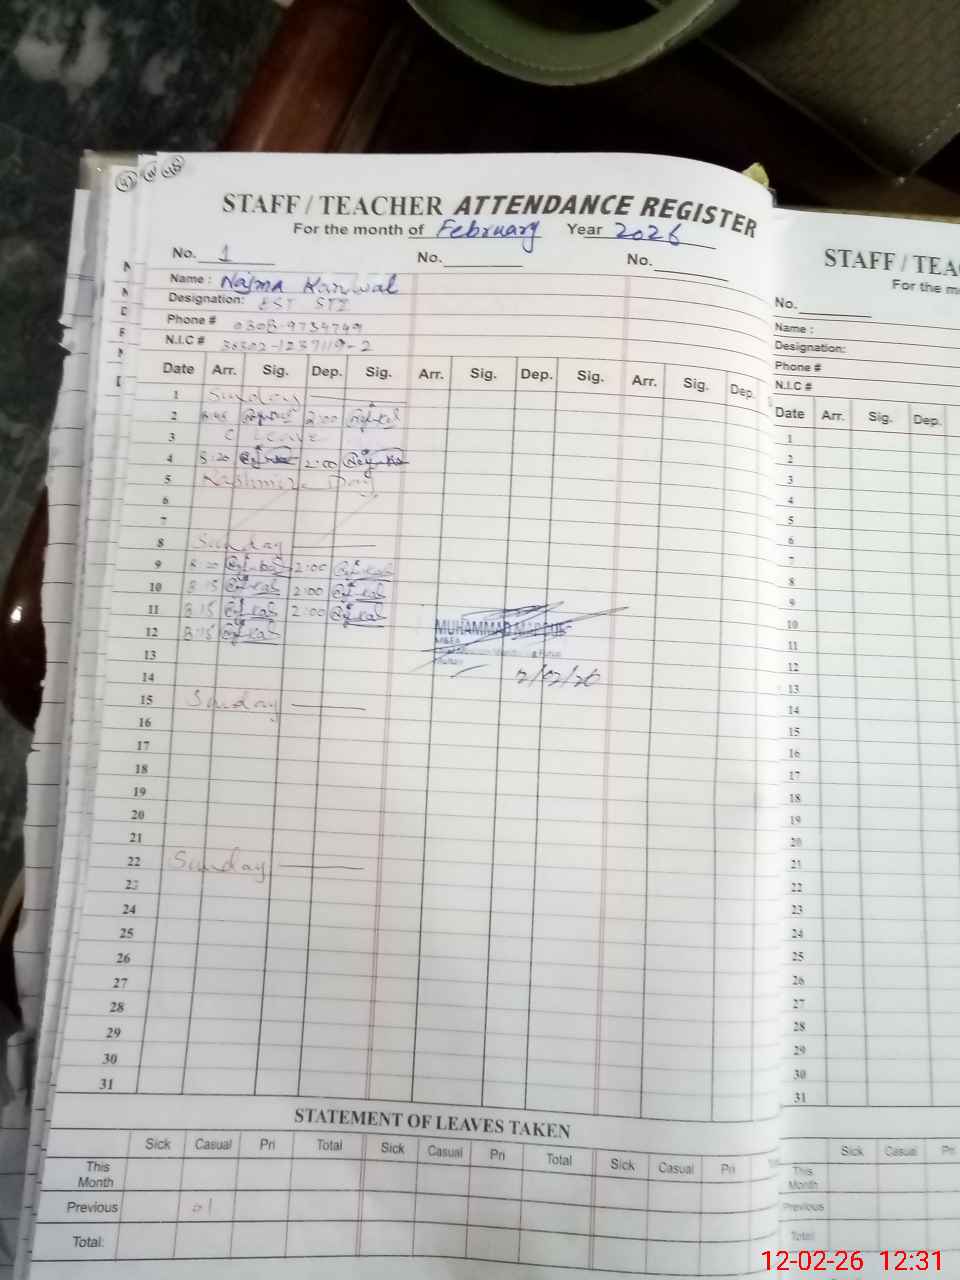 STAFF / TEACHER ATTENDANCE REGISTER
For the month of February Year 2026
No. 1 No. No.
Name : Najma Kanwal
Designation: EST STI
Phone #
N.I.C #
Date Arr. Sig. Dep. Sig. Arr. Sig. Dep. Sig. Arr. Sig. Dep.
1 Sunday
2 2:00
3 C Leave
4 8:20 2:00
5 Kashmir Day
6
7
8 Sunday
9 8:20 2:00
10 8:15 2:00
11 8:15 2:00
12 8:15
MUHAMMAD
M&EA
13
14
15 Sunday
16
17
18
19
20
21
22 Sunday
23
24
25
26
27
28
29
30
31
STATEMENT OF LEAVES TAKEN
Sick Casual Pri Total Sick Casual Pri Total Sick Casual Pri
This Month
Previous 01
Total:
STAFF / TEA
For the m
No.
Name :
Designation:
Phone #
N.I.C #
Date Arr. Sig. Dep.
1
2
3
4
5
6
7
8
9
10
11
12
13
14
15
16
17
18
19
20
21
22
23
24
25
26
27
28
29
30
31
Sick Casual Pri
This Month
Previous
Total
12-02-26 12:31